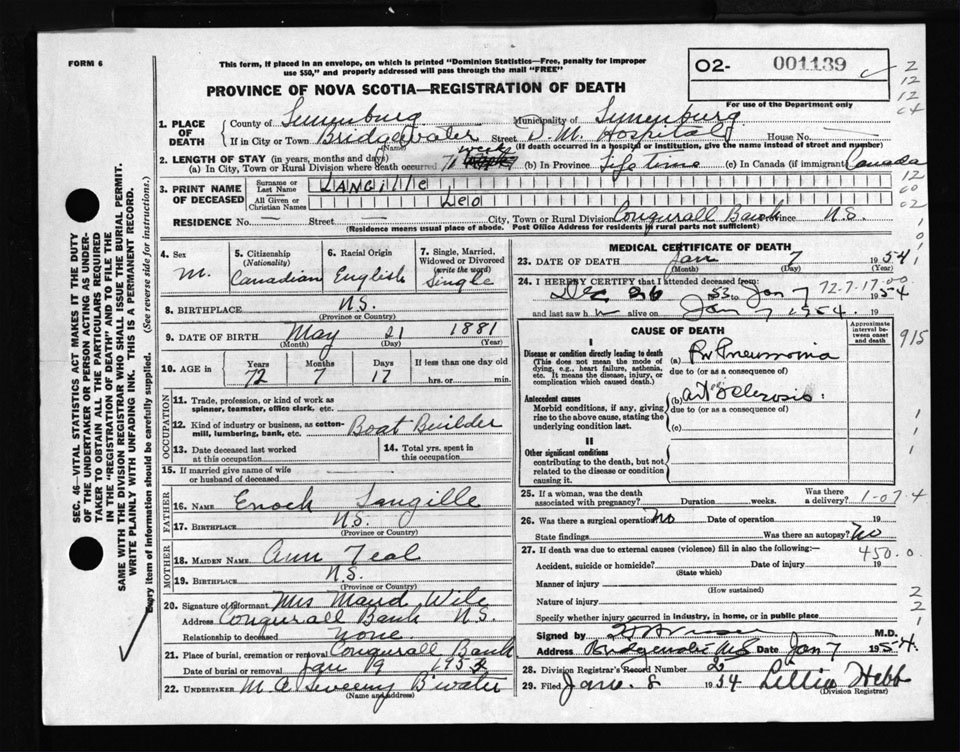 FORM 6
This form, if placed in an envelope, on which is printed "Dominion Statistics—Free, penalty for improper
use $50," and properly addressed will pass through the mail "FREE"
O2- 001139
2
12
12
04
PROVINCE OF NOVA SCOTIA—REGISTRATION OF DEATH
For use of the Department only
1. PLACE OF DEATH
County of Lunenburg Municipality of Lunenburg
If in City or Town Bridgewater Street D. M. Hospital House No. —
(Name) (If death occurred in a hospital or institution, give the name instead of street and number)
2. LENGTH OF STAY (in years, months and days)
(a) In City, Town or Rural Division where death occurred week (b) In Province Life time (c) In Canada (if immigrant) Canada
3. PRINT NAME OF DECEASED
Surname or Last Name LANGille
All Given or Christian Names Leo
12
00
02
RESIDENCE No. — Street — City, Town or Rural Division Conquerall Bank Province N.S.
(Residence means usual place of abode. Post Office Address for residents in rural parts not sufficient)
4. Sex M.
5. Citizenship (Nationality) Canadian
6. Racial Origin English
7. Single, Married, Widowed or Divorced (write the word) Single
8. BIRTHPLACE N.S.
(Province or Country)
9. DATE OF BIRTH May 21 1881
(Month) (Day) (Year)
10. AGE in Years Months Days If less than one day old
72 7 17 hrs. or min.
OCCUPATION
11. Trade, profession, or kind of work as
spinner, teamster, office clerk, etc.
12. Kind of industry or business, as cotton-
mill, lumbering, bank, etc. Boat Builder
13. Date deceased last worked
at this occupation
14. Total yrs. spent in
this occupation
15. If married give name of wife
or husband of deceased —
FATHER
16. NAME Enoch Langille
17. BIRTHPLACE N.S.
(Province or Country)
MOTHER
18. MAIDEN NAME Ann Teal
19. BIRTHPLACE N.S.
(Province or Country)
20. Signature of Informant Mrs Maud Wile
Address Conquerall Bank N.S.
Relationship to deceased None.
21. Place of burial, cremation or removal Conquerall Bank
Date of burial or removal Jan 9 195
22. UNDERTAKER M. A. Sweeny B'water
(Name and address)
MEDICAL CERTIFICATE OF DEATH
23. DATE OF DEATH Jan 7 1954
(Month) (Day) (Year)
24. I HEREBY CERTIFY that I attended deceased from:
Dec 26 1953 to Jan 7 1954
72-7-17-00
and last saw h alive on Jan 7 1954.
CAUSE OF DEATH
Approximate interval between onset and death
915
I
Disease or condition directly leading to death
(This does not mean the mode of
dying, e.g., heart failure, asthenia,
etc. It means the disease, injury, or
complication which caused death.)
(a) Pneumonia
due to (or as a consequence of)
Antecedent causes
Morbid conditions, if any, giving
rise to the above cause, stating the
underlying condition last.
(b) Art Sclerosis
due to (or as a consequence of)
(c)
II
Other significant conditions
contributing to the death, but not
related to the disease or condition
causing it.
25. If a woman, was the death
associated with pregnancy? Duration weeks. Was there a delivery?
1-07-4
26. Was there a surgical operation? No Date of operation 19
State findings Was there an autopsy? No
27. If death was due to external causes (violence) fill in also the following:—
450.0
Accident, suicide or homicide? Date of injury 19
(State which)
Manner of injury
(How sustained)
Nature of injury
Specify whether injury occurred in industry, in home, or in public place
Signed by M.D.
Address Bridgewater N.S. Date Jan 7 1954.
28. Division Registrar's Record Number 2
29. Filed Jan. 8 1954 Lillie Hebb
(Division Registrar)
SEC. 46—VITAL STATISTICS ACT MAKES IT THE DUTY
OF THE UNDERTAKER OR PERSON ACTING AS UNDER-
TAKER TO OBTAIN ALL THE PARTICULARS REQUIRED
IN THE "REGISTRATION OF DEATH" AND TO FILE THE
SAME WITH THE DIVISION REGISTRAR WHO SHALL ISSUE THE BURIAL PERMIT.
WRITE PLAINLY WITH UNFADING INK. THIS IS A PERMANENT RECORD.
Every item of information should be carefully supplied. (See reverse side for instructions.)